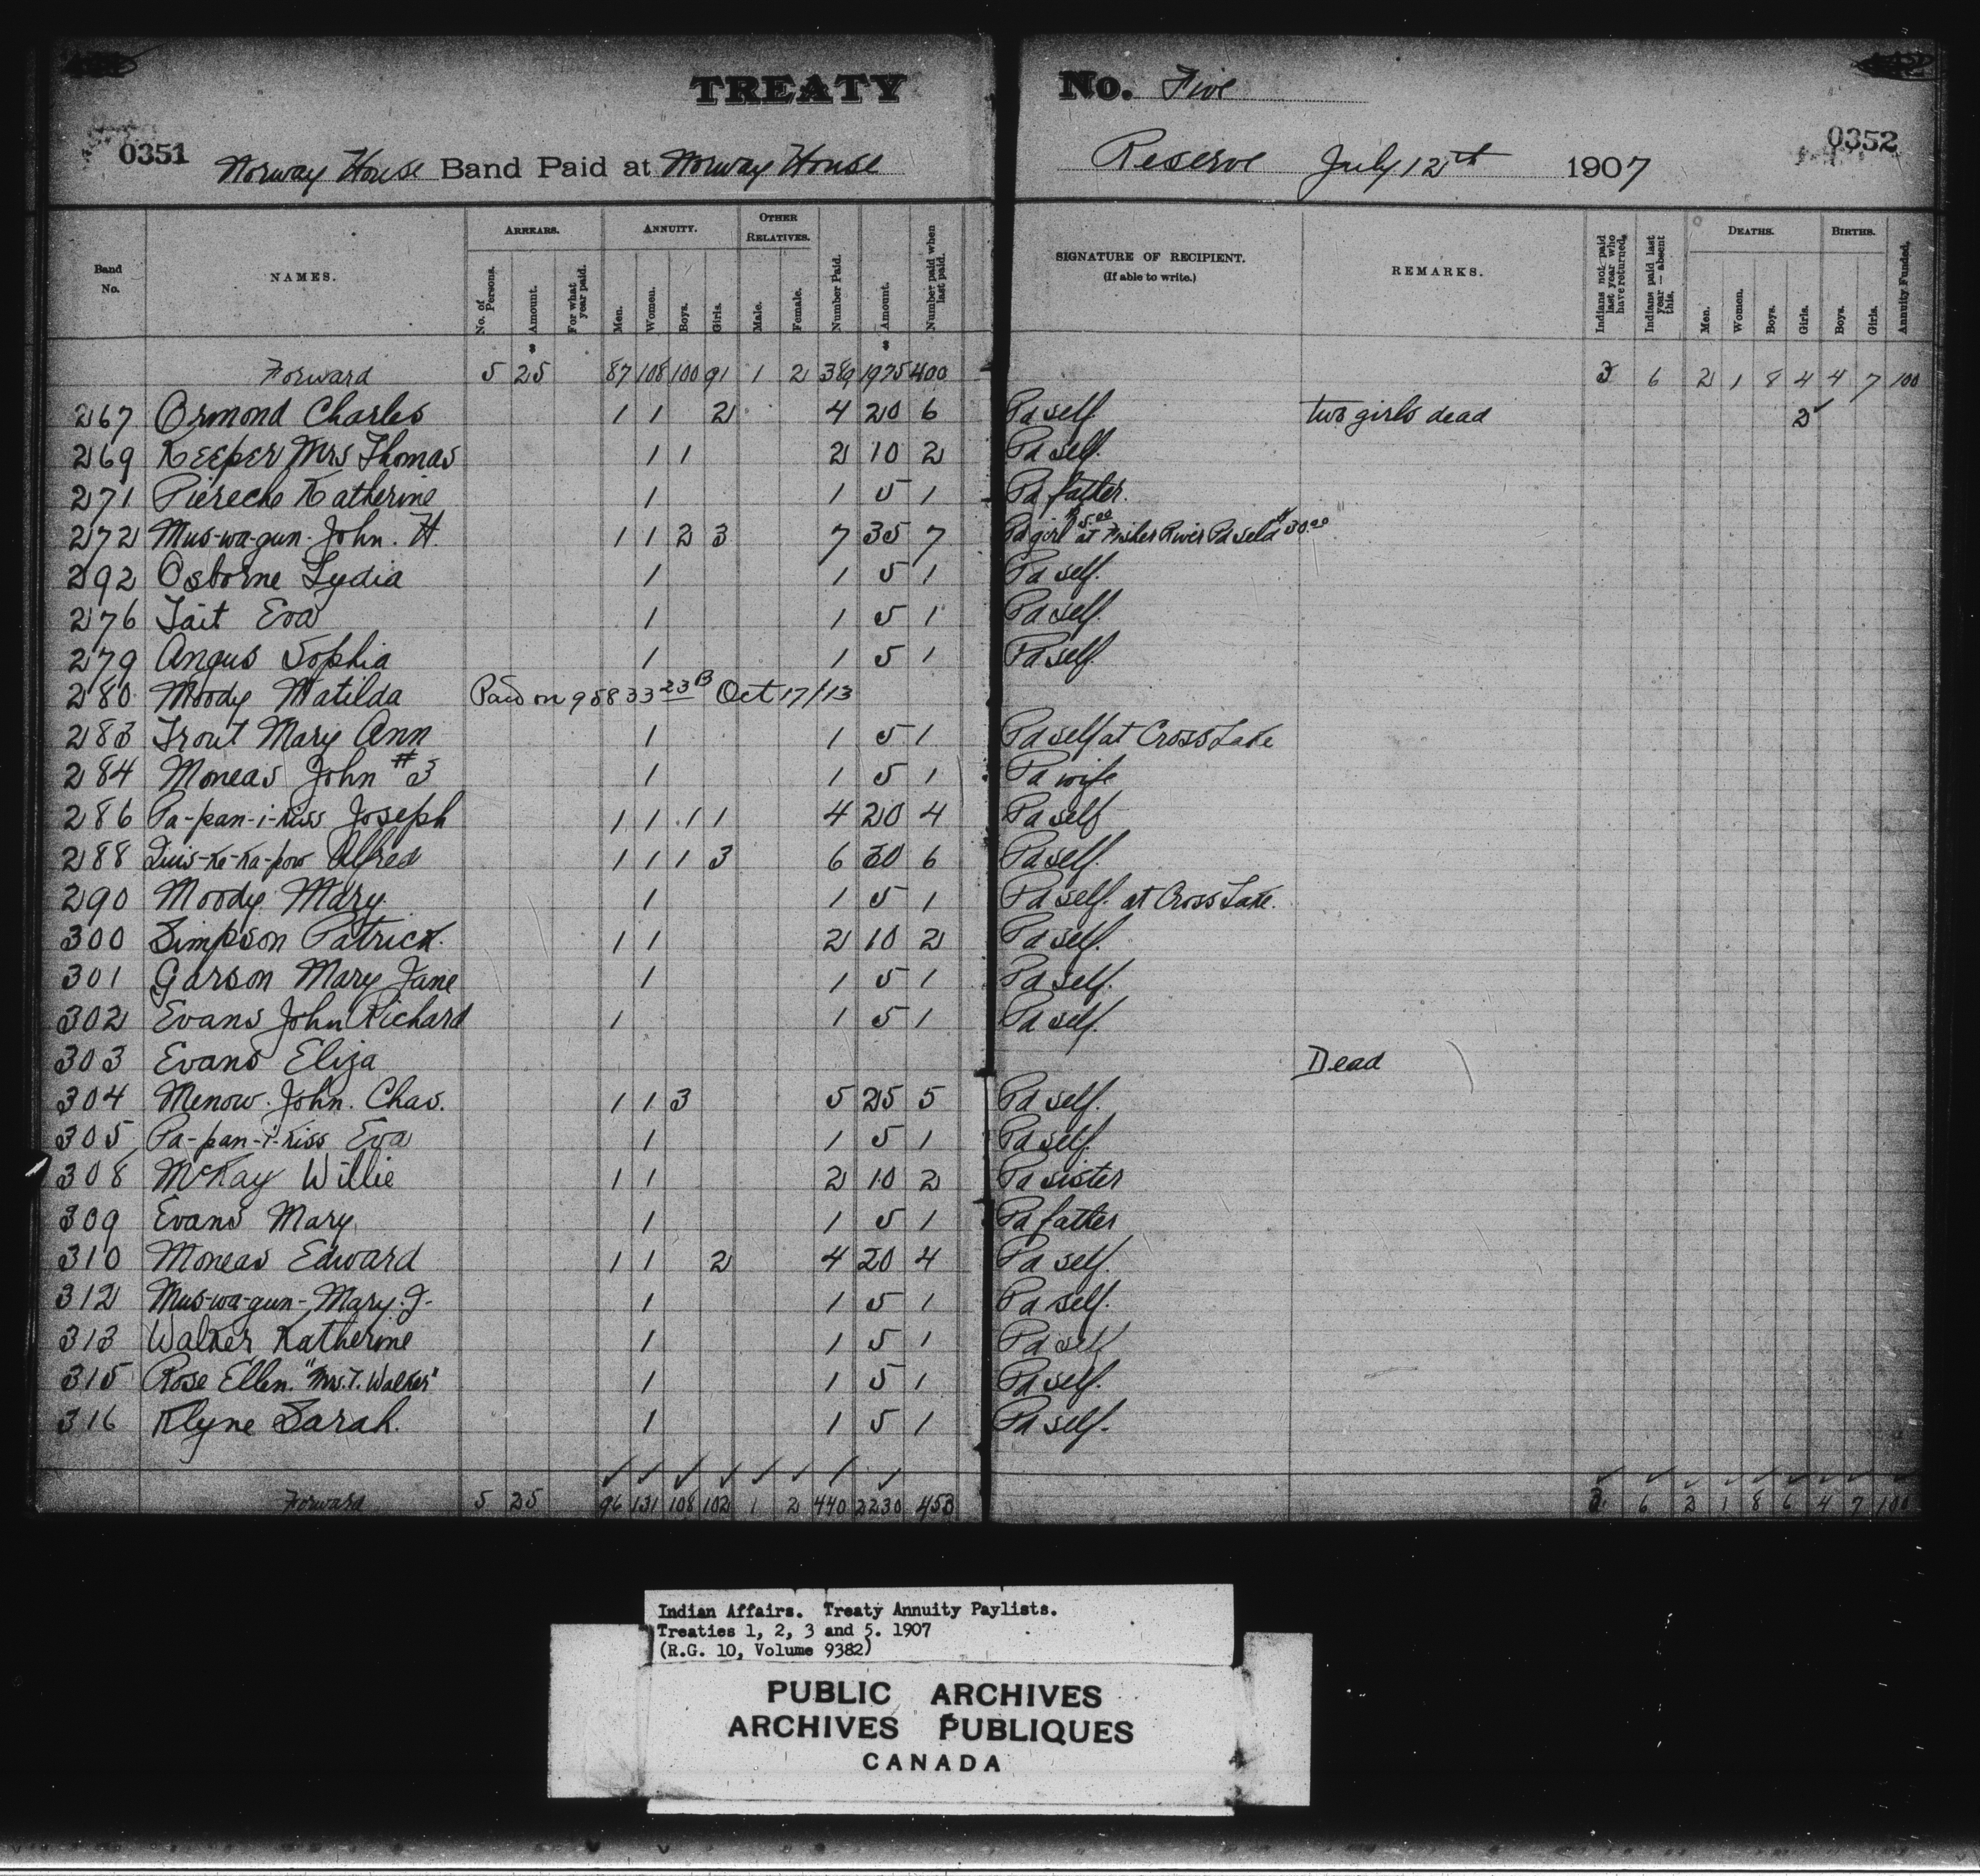 TREATY No. Five
0351 Norway House Band Paid at Norway House Reserve July 12th 1907 0352
Band No. NAMES. ARREARS. No. of Persons. Amount. For what year paid. ANNUITY. Men. Women. Boys. Girls. OTHER RELATIVES. Male. Female. Number Paid. Amount. Number paid when last paid. SIGNATURE OF RECIPIENT. (If able to write.) REMARKS. Indians not paid last year who have returned. Indians paid last year — absent this. DEATHS. Men. Women. Boys. Girls. BIRTHS. Boys. Girls. Annuity Funded.
$ $
Forward 5 25 87 108 100 91 1 2 389 1975 400 3 6 2 1 8 4 4 7 100
267 Ormond Charles 1 1 2 4 20 6 Pd self. two girls dead 2✓
269 Keeper Mrs Thomas 1 1 2 10 2 Pd self.
271 Piereche Katherine 1 1 5 1 Pd father.
272 Mus-wa-gun. John. H. 1 1 2 3 7 35 7 Pd girl $5.00 at Fisher River Pd self $30.00
292 Osborne Lydia 1 1 5 1 Pd self.
276 Tait Eva 1 1 5 1 Pd self.
279 Angus Sophia 1 1 5 1 Pd self.
280 Moody Matilda Paid on 95833 23B Oct 17/13
283 Trout Mary Ann 1 1 5 1 Pd self at Cross Lake
284 Moneas John #3 1 1 5 1 Pd wife
286 Pa-pan-i-kiss Joseph 1 1 1 1 4 20 4 Pd self
288 Quis-ke-ka-pow Alfred 1 1 1 3 6 30 6 Pd self.
290 Moody Mary. 1 1 5 1 Pd self. at Cross Lake.
300 Simpson Patrick. 1 1 2 10 2 Pd self.
301 Garson Mary Jane 1 1 5 1 Pd self.
302 Evans John Richard 1 1 5 1 Pd self.
303 Evans Eliza Dead
304 Menow. John. Chas. 1 1 3 5 25 5 Pd self.
305 Pa-pan-i-kiss Eva 1 1 5 1 Pd self.
308 McKay Willie 1 1 2 10 2 Pd sister
309 Evans Mary 1 1 5 1 Pd father
310 Moneas Edward 1 1 2 4 20 4 Pd self.
312 Mus-wa-gun-Mary. J. 1 1 5 1 Pd self.
313 Walker Katherine 1 1 5 1 Pd self
315 Rose Ellen. "Mrs. T. Walker" 1 1 5 1 Pd self.
316 Klyne Sarah. 1 1 5 1 Pd self.
✓ ✓ ✓ ✓ ✓ ✓ ✓ ✓ ✓ ✓ ✓ ✓ ✓ ✓ ✓ ✓ ✓
Forward 5 25 96 131 108 102 1 2 440 2230 453 3 6 2 1 8 6 4 7 100
Indian Affairs. Treaty Annuity Paylists.
Treaties 1, 2, 3 and 5. 1907
(R.G. 10, Volume 9382)
PUBLIC ARCHIVES
ARCHIVES PUBLIQUES
CANADA